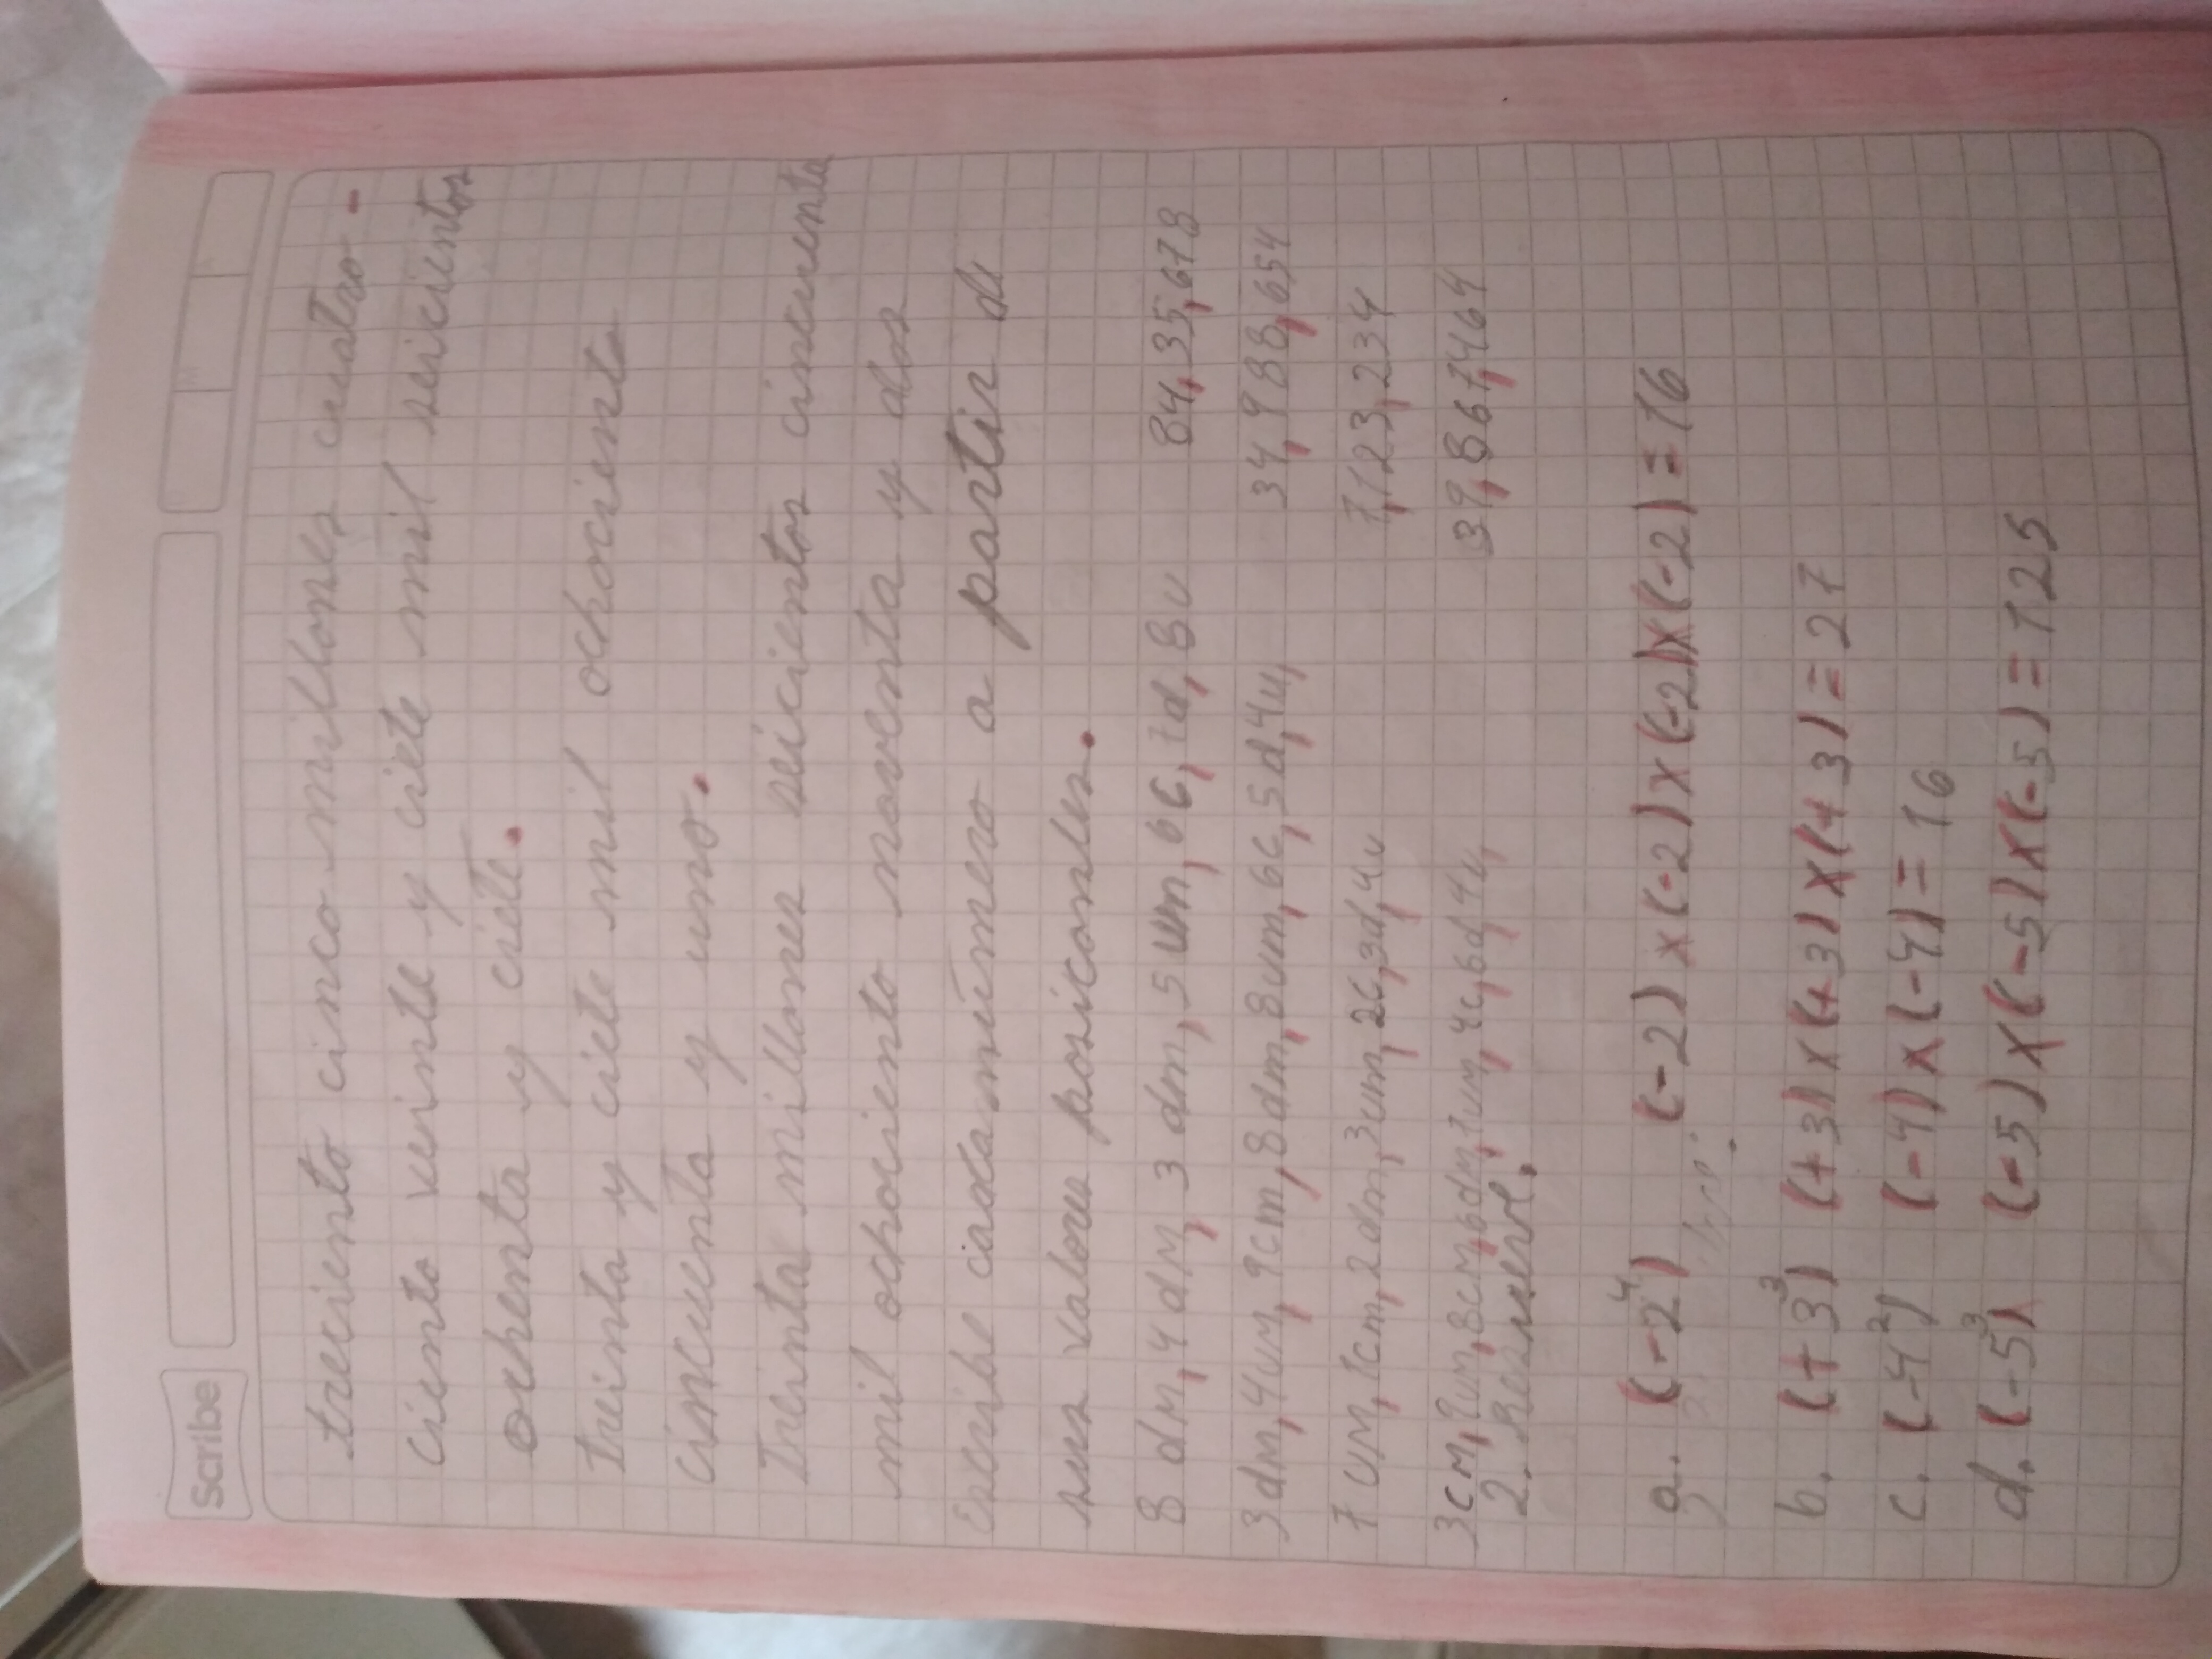 Scribe
trecciento cinco millones cuatro-
ciento veinte y ciete mil seicientos
ochenta y ciete.
treinta y ciete mil ochociento
cincuenta y uno.
Treinta millones seicientos cincuenta
mil ochociento noventa y dos
Escribe cadamúmero a partir de
sus valores posiconles.
8 dM, 4 dM, 3 dm, 5 um, 6c, 7d, 8u 84,35,678
3dM, 4uM, 9cm, 8dm, 8um, 6c, 5d, 4u, 34,988,654
7 UM, 1cm, 2dm, 3um, 2c, 3d, 4u 7,123,234
3cM, 9uM, 8cM, 6dM, 7um, 4c, 6d, 4u, 39,867,464
2. Resuelve.
a. (-2⁴) (-2)x(-2)x(-2)x(-2)=16
b. (+3³) (+3)x(+3)x(+3)=27
c. (-4²) (-4)x(-4)=16
d. (-5³) (-5)x(-5)x(-5)=125